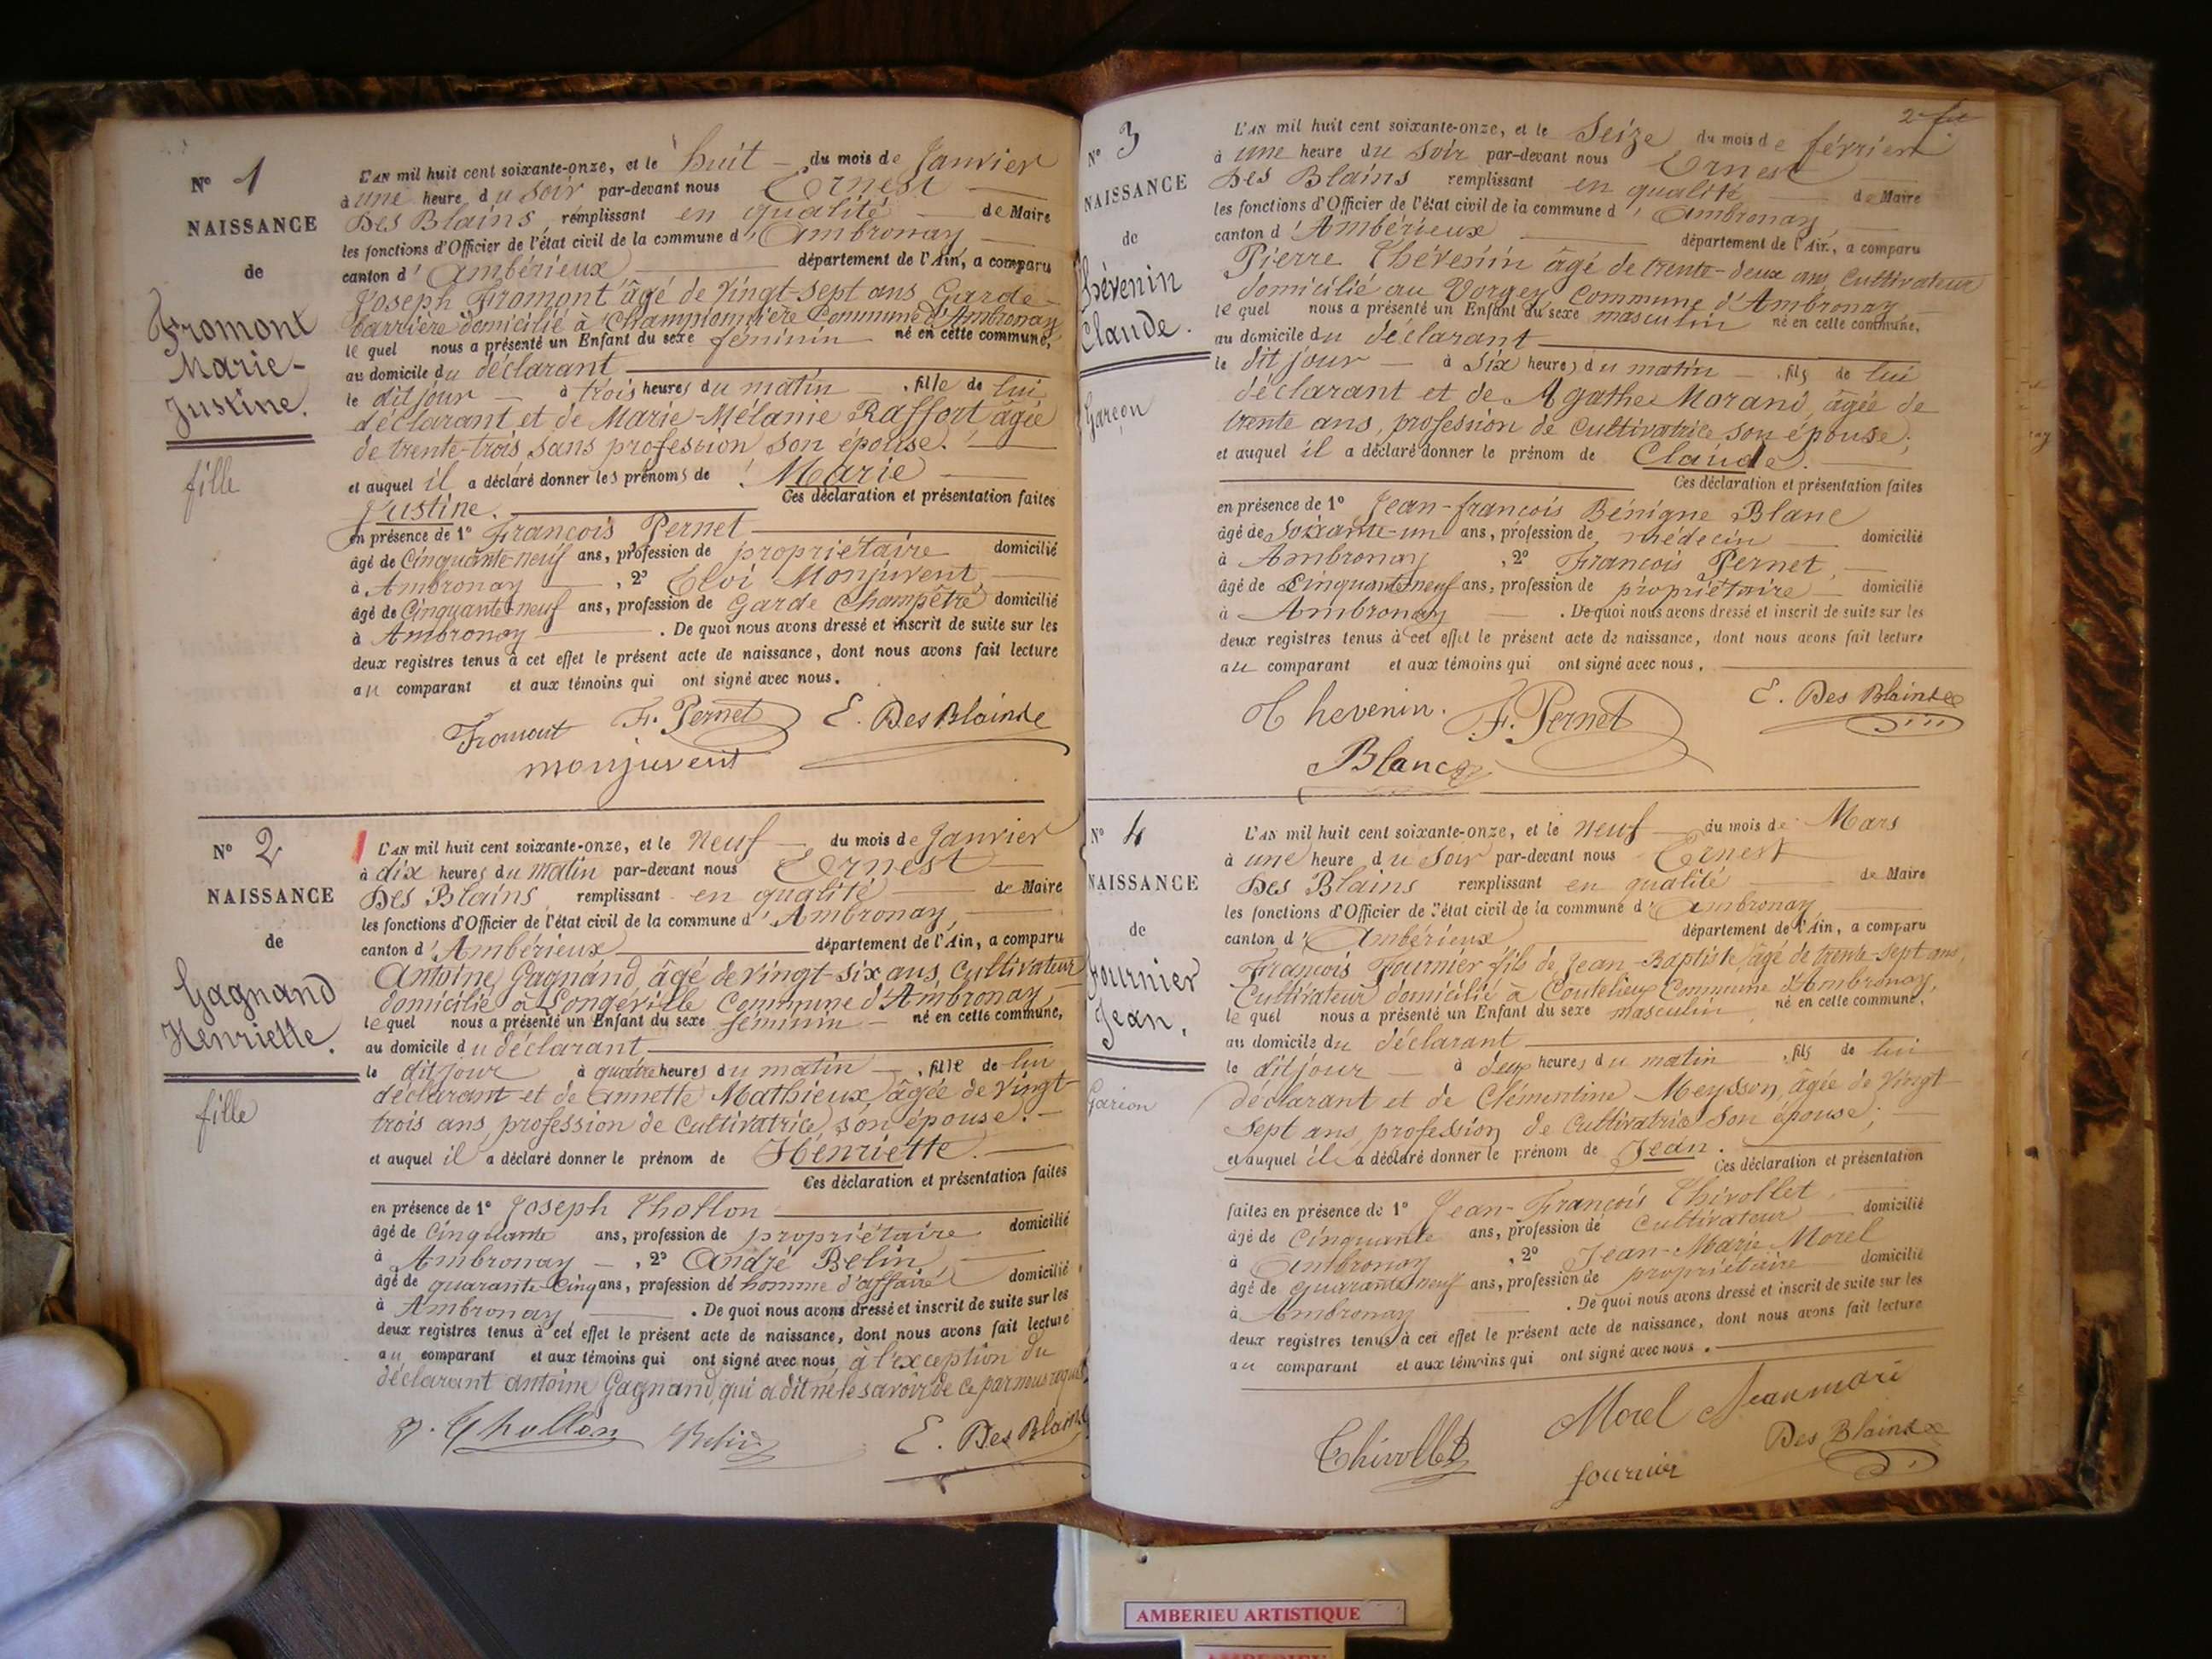 N° 1
NAISSANCE
de
Fromont
Marie-
Justine.
fille
L'AN mil huit cent soixante-onze, et le huit du mois de Janvier
à une heure du soir par-devant nous Ernest
Des Blains remplissant en qualité de Maire
les fonctions d'Officier de l'état civil de la commune d'Ambronay
canton d'Ambérieux département de l'Ain, a comparu
Joseph Fromont âgé de vingt-sept ans Garde-
barrière domicilié à Championnière Commune d'Ambronay
lequel nous a présenté un Enfant du sexe féminin né en cette commune,
au domicile du déclarant
le dit jour à trois heures du matin, fille de lui
déclarant et de Marie-Mélanie Raffort agée
de trente-trois, sans profession son épouse.
et auquel il a déclaré donner les prénoms de Marie
Justine. Ces déclaration et présentation faites
en présence de 1° François Pernet
âgé de Cinquante-neuf ans, profession de propriétaire domicilié
à Ambronay, 2° Eloi Monjuvent,
âgé de Cinquante-neuf ans, profession de Garde Champêtre domicilié
à Ambronay. De quoi nous avons dressé et inscrit de suite sur les
deux registres tenus à cet effet le présent acte de naissance, dont nous avons fait lecture
au comparant et aux témoins qui ont signé avec nous.
Fromont F. Pernet E. Des Blains
monjuvent
N° 2
NAISSANCE
de
Gagnand
Henriette.
fille
L'AN mil huit cent soixante-onze, et le neuf du mois de Janvier
à dix heures du matin par-devant nous Ernest
Des Blains remplissant en qualité de Maire
les fonctions d'Officier de l'état civil de la commune d'Ambronay,
canton d'Ambérieux département de l'Ain, a comparu
Antoine Gagnand âgé de vingt-six ans, Cultivateur
domicilié à Longeville Commune d'Ambronay,
lequel nous a présenté un Enfant du sexe féminin né en cette commune,
au domicile du déclarant
le dit jour à quatre heures du matin, fille de lui
déclarant et de Annette Mathieux âgée de vingt-
trois ans, profession de Cultivatrice, son épouse.
et auquel il a déclaré donner le prénom de Henriette.
Ces déclaration et présentation faites
en présence de 1° Joseph Thollon
âgé de Cinquante ans, profession de propriétaire domicilié
à Ambronay, 2° André Belin
âgé de quarante-Cinq ans, profession de homme d'affaire domicilié
à Ambronay. De quoi nous avons dressé et inscrit de suite sur les
deux registres tenus à cet effet le présent acte de naissance, dont nous avons fait lecture
au comparant et aux témoins qui ont signé avec nous, à l'exception du
déclarant antoine Gagnand, qui a dit ne le savoir de ce par nous requis
J. Thollon Belin E. Des Blains
2
N° 3
NAISSANCE
de
Thévenin
Claude.
Garçon
L'AN mil huit cent soixante-onze, et le Seize du mois de février
à une heure du soir par-devant nous Ernest
Des Blains remplissant en qualité de Maire
les fonctions d'Officier de l'état civil de la commune d'Ambronay,
canton d'Ambérieux département de l'Ain, a comparu
Pierre Thévenin âgé de trente-deux ans, Cultivateur
domicilié au Vorgey, Commune d'Ambronay
lequel nous a présenté un Enfant du sexe masculin né en cette commune,
au domicile du déclarant
le dit jour à Six heures du matin, fils de lui
déclarant et de Agathe Morand, âgée de
trente ans, profession de Cultivatrice son épouse,
et auquel il a déclaré donner le prénom de Claude.
Ces déclaration et présentation faites
en présence de 1° Jean-françois Bénigne Blanc
âgé de Soixante-un ans, profession de médecin domicilié
à Ambronay, 2° François Pernet,
âgé de Cinquante neuf ans, profession de propriétaire domicilié
à Ambronay. De quoi nous avons dressé et inscrit de suite sur les
deux registres tenus à cet effet le présent acte de naissance, dont nous avons fait lecture
au comparant et aux témoins qui ont signé avec nous.
Thevenin. F. Pernet E. Des Blains
Blanc
N° 4
NAISSANCE
de
Fournier
Jean.
Garçon
L'AN mil huit cent soixante-onze, et le neuf du mois de Mars
à une heure du soir par-devant nous Ernest
Des Blains remplissant en qualité de Maire
les fonctions d'Officier de l'état civil de la commune d'Ambronay
canton d'Ambérieux département de l'Ain, a comparu
François Fournier fils de Jean-Baptiste, âgé de trente-sept ans,
Cultivateur domicilié à Coutelieux Commune d'Ambronay,
lequel nous a présenté un Enfant du sexe masculin né en cette commune,
au domicile du déclarant
le dit jour à deux heures du matin, fils de lui
déclarant et de Clémentine Meysson, âgée de vingt
Sept ans, profession de Cultivatrice son épouse;
et auquel il a déclaré donner le prénom de Jean.
Ces déclaration et présentation
faites en présence de 1° Jean-François Thivollet,
âgé de Cinquante ans, profession de Cultivateur domicilié
à Ambronay, 2° Jean-Marie Morel
âgé de quarante neuf ans, profession de propriétaire domicilié
à Ambronay. De quoi nous avons dressé et inscrit de suite sur les
deux registres tenus à cet effet le présent acte de naissance, dont nous avons fait lecture
au comparant et aux témoins qui ont signé avec nous.
Thivollet Morel Jean marie
fournier Des Blains
AMBERIEU ARTISTIQUE
AMBERIEU